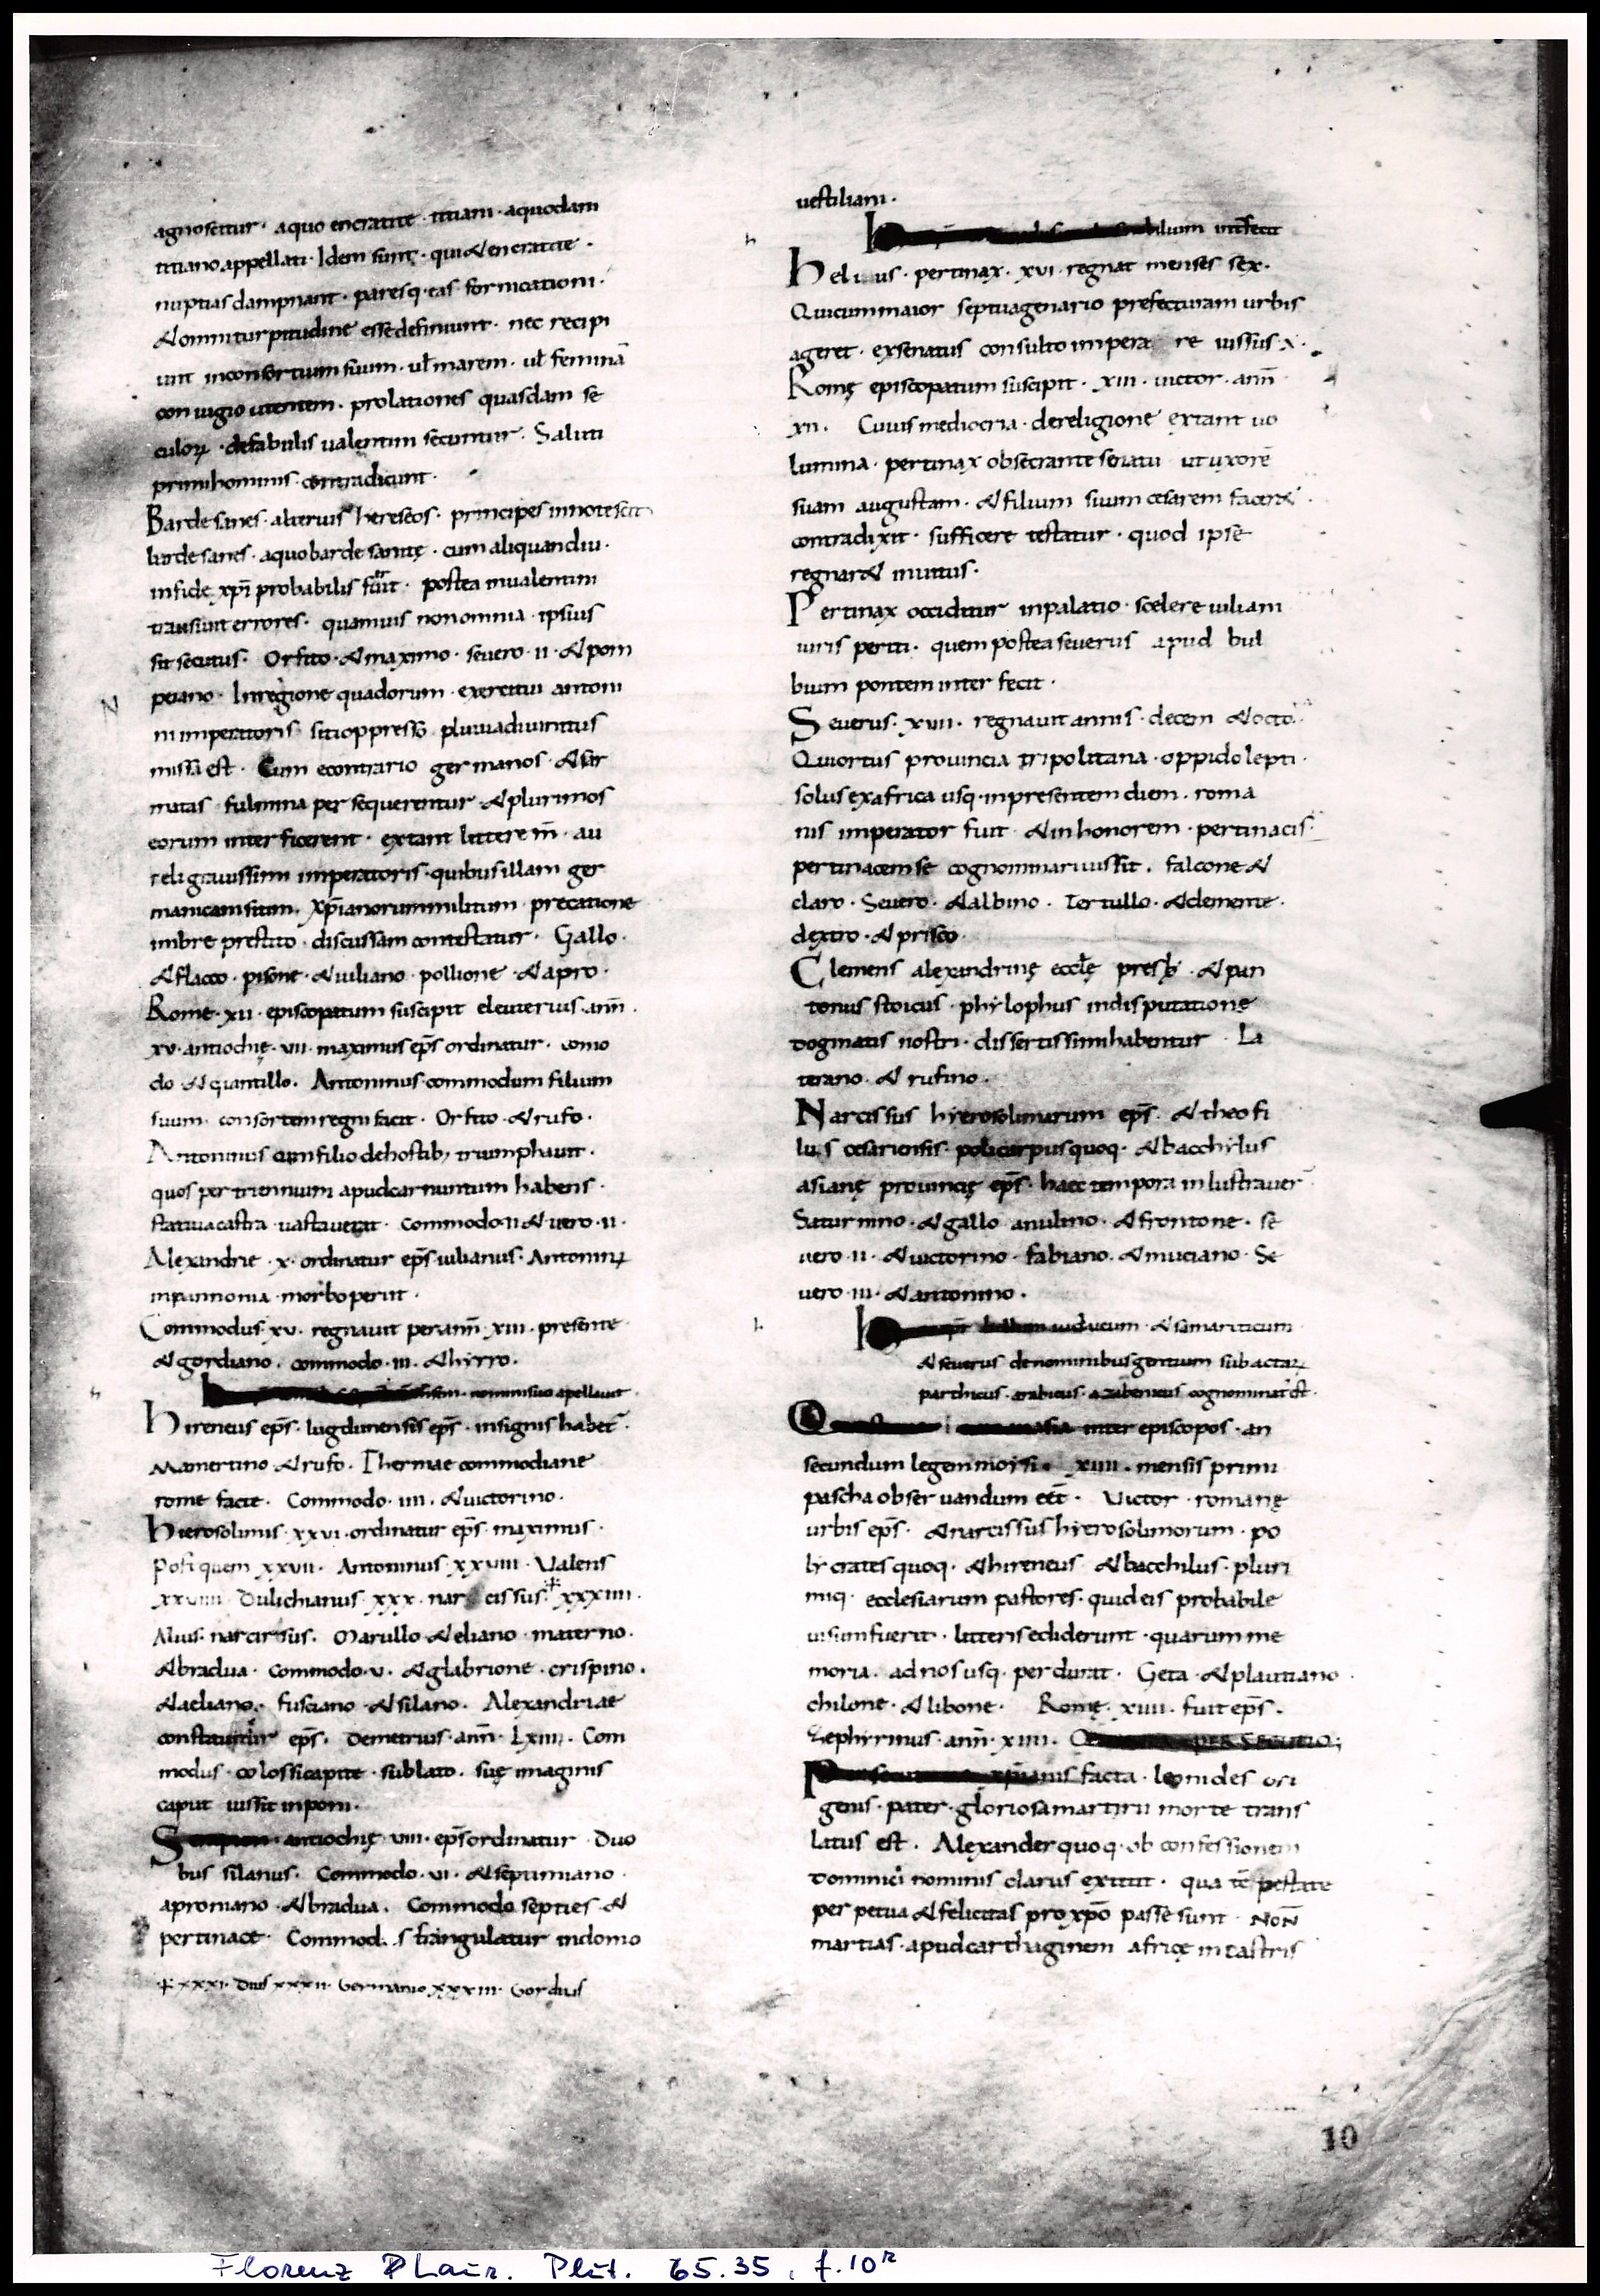 agnoscitur · aquo encratite · titiani · aquodam
titiano appellati · Idem sunt · qui & encratite ·
nuptias dampnant · paresq · eas fornicationi ·
& omni turpitudine esse definiunt · nec recipi
unt in consortium suum · ul marem · ul feminā
coniugio utentem · prolationes quasdam se
culoꝝ · de fabulis ualentini secuntur · Saluti
primi hominis · contradicunt ·
Bardesanes · alterius hereseos · principes innotescit
bardesanes · aquo bardesanitę · cum aliquandiu ·
infide xp̄i probabilis fuit · postea in ualentini
transiuit errores · quamuis non omnia · ipsius
sit secutus · Orfito · & maximo · seuero · II · & pom
peiano · In regione quadorum · exercitui antoni
ni imperatoris · siti oppresso · pluuia diuinitus
missa est · Cum econtrario germanos · & sar
matas · fulmina persequerentur · & plurimos
eorum interficerent · extant littere m̄ · au
reli grauissimi imperatoris · quibus illam ger
manicam sitim · xp̄ianorum militum · precatione
imbre prestito · discussam contestatur · Gallo ·
& flacco · pisone · & iuliano · pollione · & apro ·
Rome · XII · episcopatum suscipit eleuterius · ann̄ ·
XV · antiochię · VII · maximus ep̄s ordinatur · como
do & quintillo · Antoninus commodum filium
suum · consortem regni facit · Orfito · & rufo ·
Antoninus cum filio de hostib; triumphauit ·
quos per triennium apud carnuntum habens ·
statiua castra uastauerat · Commodo · II & uero · II ·
Alexandrie · X · ordinatur ep̄s iulianus · Antoninꝰ
in pannonia · morbo perit ·
Commodus · XV · regnauit per ann̄ · XIII · presente
& gordiano · commodo · III · & hirro ·
nomini suo apellauit
Hireneus ep̄s · lugdunensis ep̄s · insignis habet̄ ·
Mamertino & rufo · Thermae commodiane
rome facte · Commodo · IIII · & uictorino ·
Hierosolimis · XXVI · ordinatur ep̄s · maximus ·
Post quem XXVII · Antoninus XXVIII · Ualens
XXVIIII Dulichianus · XXX · narcissus ⁜ XXXIIII ·
Alius · narcissus · Marullo & eliano · materno ·
& bradua · Commodo · V · & glabrione · crispino ·
& aeliano · fusciano · & silano · Alexandriae
constituitur ep̄s · Demetrius · ann̄ · LXIII · Com
modus · colossi capite · sublato · suę imaginis
caput iussit inponi ·
Serapion · antiochię · VIII · ep̄s ordinatur Duo
bus silanis · Commodo · VI · & septimiano
aproniano · & bradua · Commodo septies · &
pertinace · Commod. strangulatur in domo
⁜ XXXI · Dius XXXII · Germanio XXXIII · Gordius
uestiliani ·
interfecit
Helius · pertinax · XVI · regnat menses sex ·
Qui cum maior septuagenario prefecturam urbis
ageret · ex senatus consulto imperare iussus ·
Romę episcopatum suscipit · XIII · uictor · ann̄ ·
XII · Cuius mediocria · de religione extant uo
lumina · pertinax obsecrante senatu ut uxorē
suam augustam · & filium suum cesarem facer& ·
contradixit · sufficere testatur · quod ipse
regnar& inuitus ·
Pertinax occiditur inpalatio · scelere iuliani
iuris periti · quem postea seuerus apud bul
bium pontem interfecit ·
Seuerus · XVII · regnauit annis · decem & octo ·
Qui ortus prouincia tripolitana · oppido lepti ·
solus ex africa usq · in presentem diem · roma
nis imperator fuit · & in honorem · pertinacis ·
pertinacem se cognominari iussit · falcone &
claro · Seuero · & albino · Tertullo · & clemente ·
dextro · & prisco ·
Clemens alexandrinę eccl̄ę presb̄ · & pan
tenus stoicus · phylophus in disputatione
dogmatis nostri · dissertissimi habentur · La
terano · & rufino ·
Narcissus hyerosolimarum ep̄s · & theofi
lus cesariensis · policarpus quoq · & bacchylus
asianę prouincię ep̄s · haec tempora inlustrauer̄
Saturnino · & gallo anulino · & frontone · se
uero · II · & uictorino · fabiano · & muciano · Se
uero · III · & antonino ·
iudaicum · & samariticum
& seuerus de nominibus gentium subactaꝝ
parthicus · arabicus · azabenicus cognominat' est ·
inter episcopos · an
secundum legem moysi · XIIII · mensis primi
pascha obseruandum eēt · Uictor · romanę
urbis ep̄s · & narcissus hyerosolimorum · po
lycrates quoq · & hireneus & bacchilus · pluri
miq · ecclesiarum pastores · quid eis probabile
uisum fuerit · litteris ediderunt · quarum me
moria · ad nos usq · perdurat · Geta · & plautiano ·
chilone · & libone · Romę · XIIII · fuit ep̄s ·
Zephyrinus · ann̄ · XIIII · PERSECUTIO;
xp̄ianis facta · leonides ori
genis · pater · gloriosa martirii morte trans
latus est · Alexander quoq · ob confessionem
dominici nominis clarus extitit · qua tēpestate
perpetua & felicitas pro xp̄o passe sunt · NON̄
martias · apud carthaginem africę in castris
10
Florenz Laur. Plut. 65.35, f.10ʳ